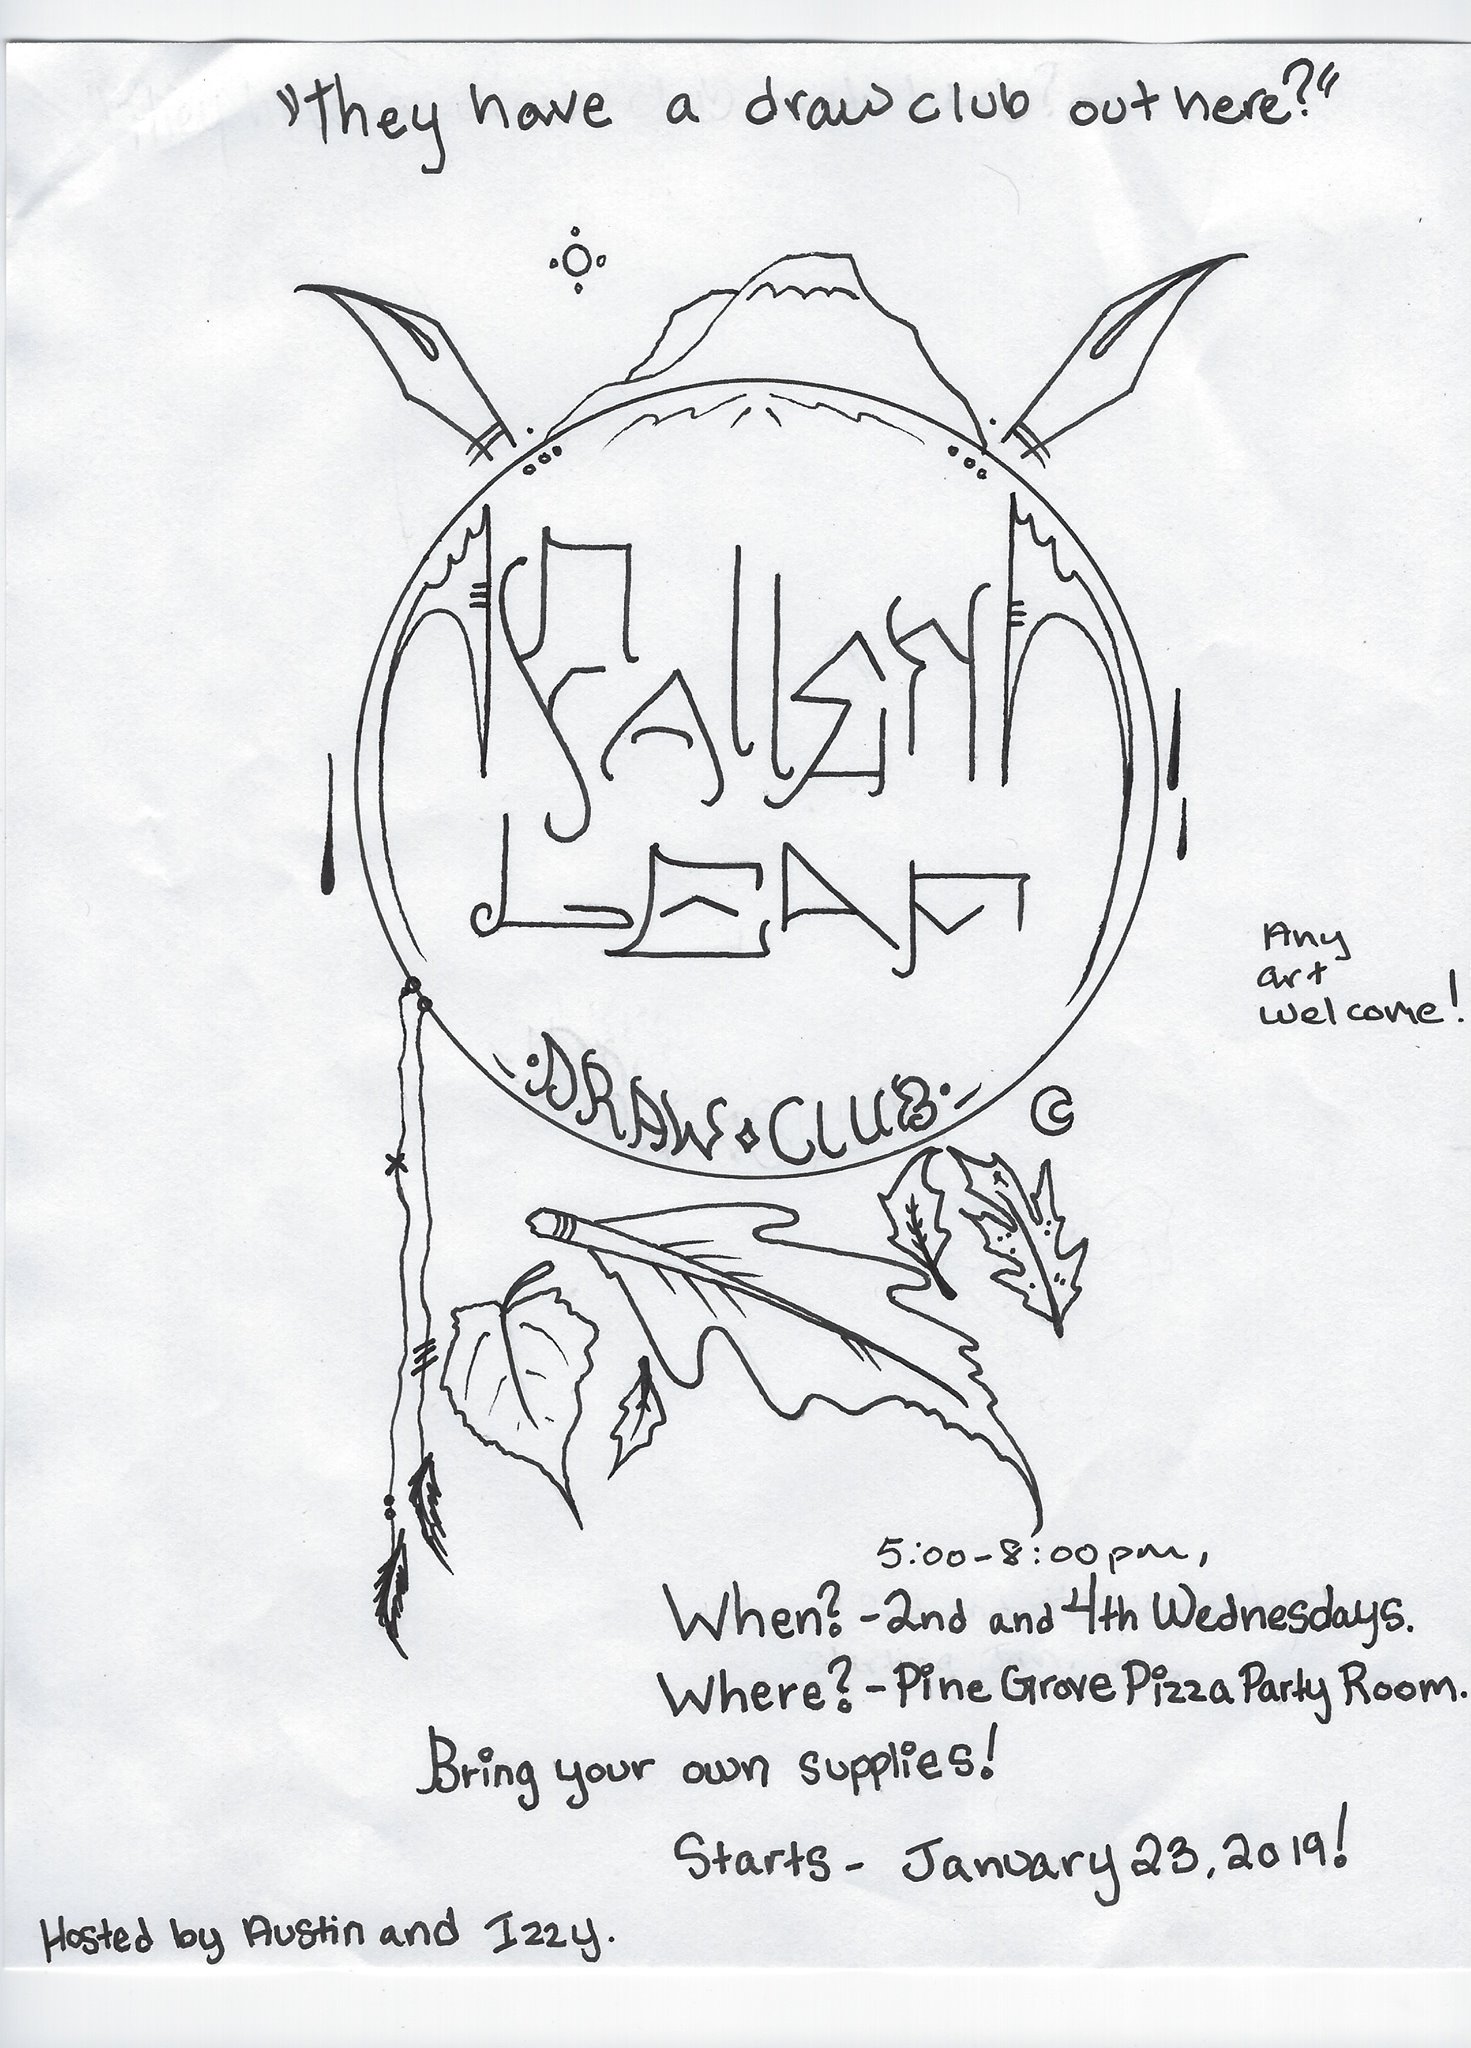 "They have a draw club out here?"
FAllEN
LEAF
Any
art
welcome!
·DRAW⋄CLUB·
©
5:00-8:00pm,
When? - 2nd and 4th Wednesdays.
Where? - Pine Grove Pizza Party Room.
Bring your own supplies!
Starts - January 23, 2019!
Hosted by Austin and Izzy.